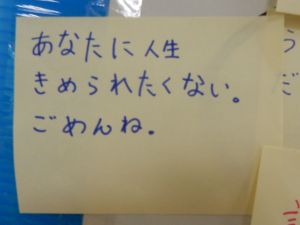 あなたに人生
きめられたくない。
ごめんね.
う
だ